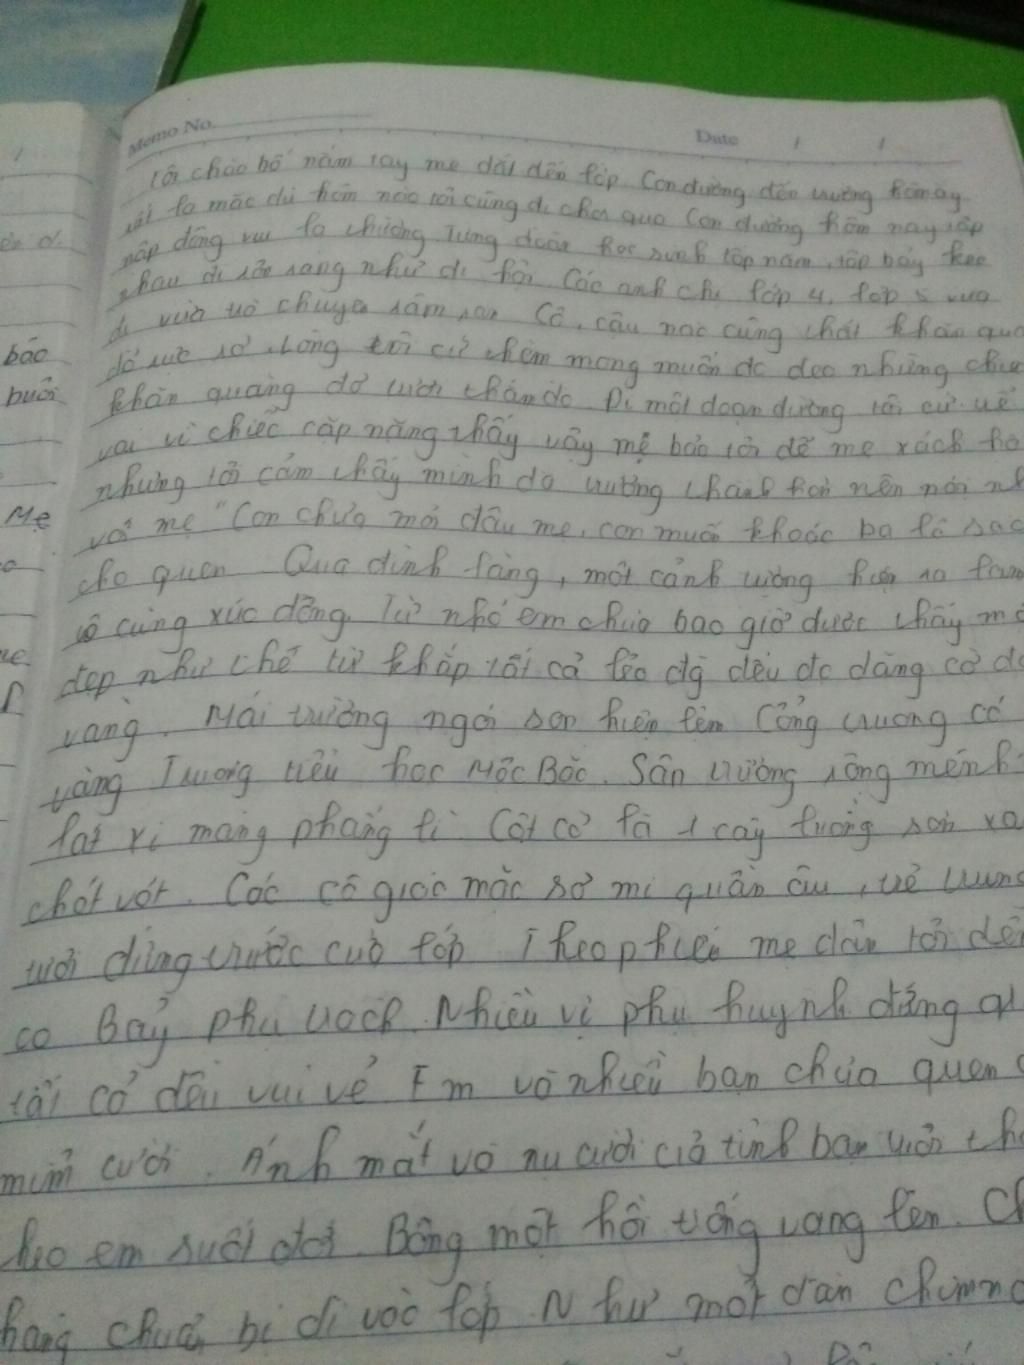 Memo No. Date / /
Tôi chào bố nắm tay mẹ dắt đến lớp. Con đường đến trường hôm ấy
rất lạ mặc dù hôm nào tôi cũng đi chơi qua Con đường hôm nay tấp
nập đông vui lạ thường Từng đoàn học sinh tốp năm, tốp bảy theo
nhau đi rộn ràng như đi hội Các anh chị lớp 4, lớp 5 vừa
đi vừa trò chuyện râm ran Cô, cậu nào cũng thắt khăn quàng
đỏ rực rỡ. Lòng tôi cứ thèm mong muốn đc đeo những chiếc
khăn quàng đỏ tươi thắm đó Đi một đoạn đường tôi cứ
vai vì chiếc cặp nặng thấy vậy mẹ bảo tôi để mẹ xách hộ
nhưng tôi cảm thấy mình đã trưởng thành hơn nên nói
với mẹ "Con chưa mỏi đâu mẹ, con muốn khoác ba lô
cho quen Qua đình làng, một cảnh tượng hiện ra làm
vô cùng xúc động. Từ nhỏ em chưa bao giờ được thấy
đẹp như thế từ khắp tất cả đều đc dăng cờ đỏ
vàng. Mái trường ngói son hiện lên Cổng trường có
vàng Trương tiểu học Mộc Bắc. Sân trường rộng mênh
lát xi măng phẳng lì Cột cờ là 1 cây luồng son
chót vót. Các cô giáo mặc sơ mi quần âu, vẻ
tươi đứng trước cửa lớp Theo phiếu mẹ dẫn tôi đến
co Bảy phụ trách. Nhiều vị phụ huynh đứng
tất cả đều vui vẻ Em và nhiều bạn chưa quen
mỉm cười. Ánh mắt và nụ cười của tình bạn
theo em suốt đời. Bỗng một hồi trống vang lên.
hàng chuẩn bị đi vào lớp Như một đàn chim
bão
buổi
Mẹ